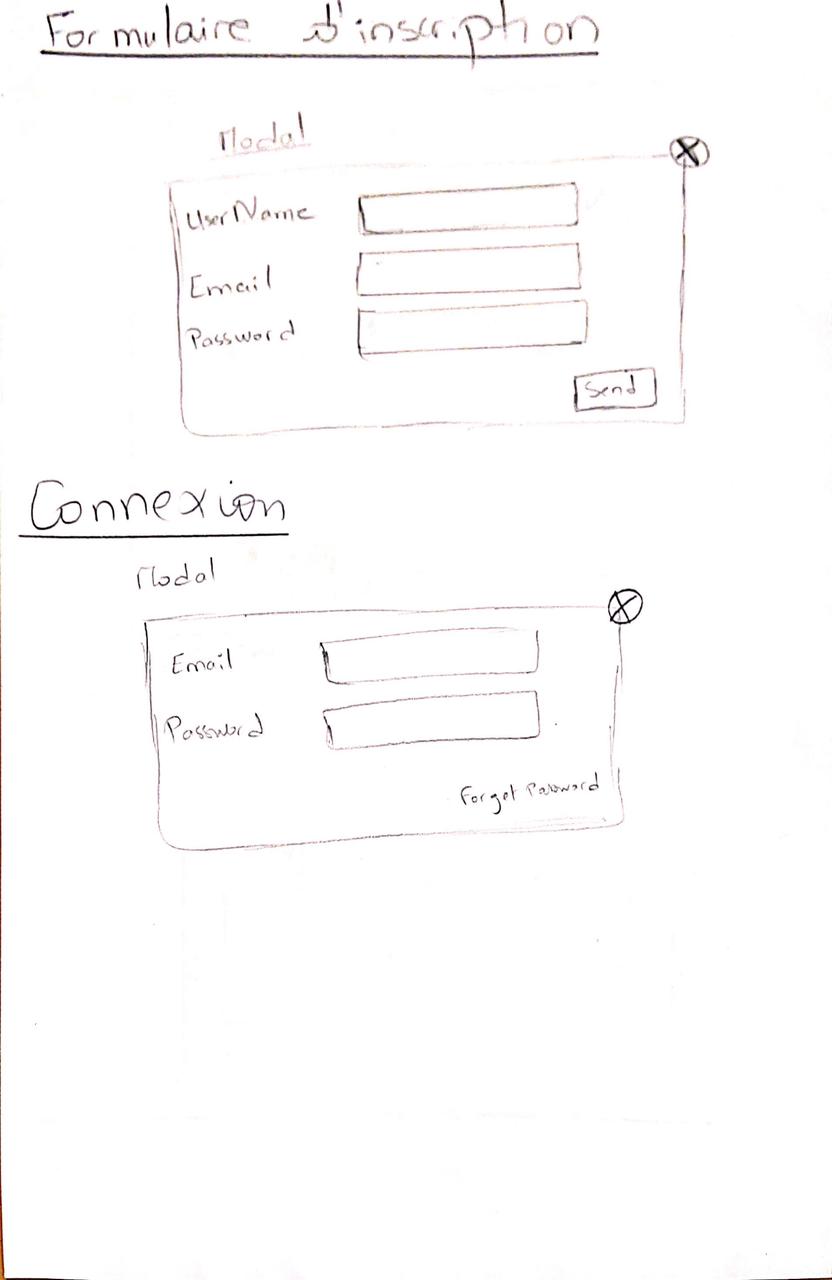 Formulaire d'inscription
Modal
UserName
Email
Password
Send
Connexion
Modal
Email
Password
Forget Password